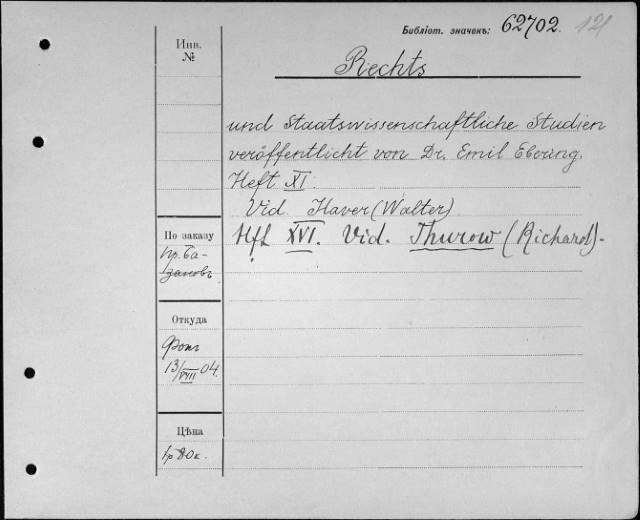 Библіот. значекъ: 62702. 121
Инв.
№
Rechts
und Staatswissenschaftliche Studien
veröffentlicht von Dr. Emil Ebering.
Heft XI.
Vid. Haver (Walter)
Hft XVI. Vid. Thurow (Richard).-
По заказу
пр. Ба-
зановъ
Откуда
13/VIII 04.
Цѣна
1р 80к.